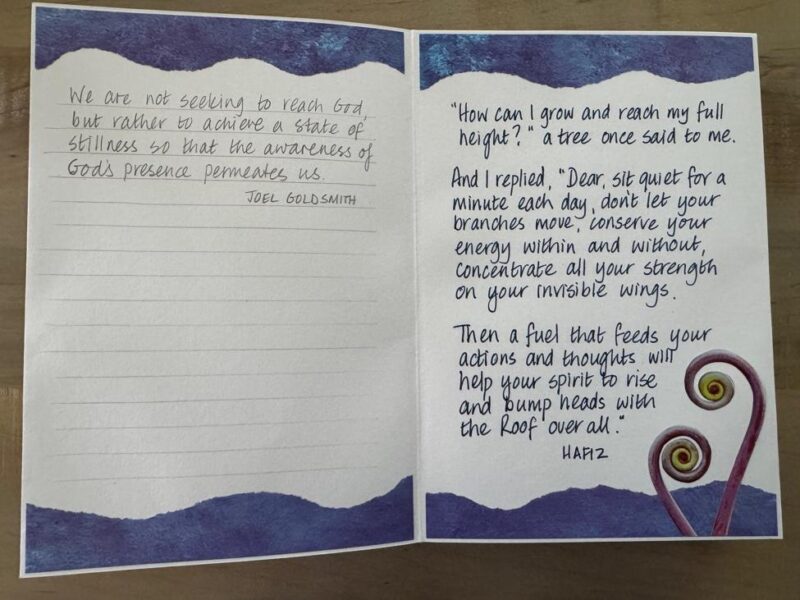 We are not seeking to reach God,
but rather to achieve a state of
stillness so that the awareness of
God's presence permeates us.
JOEL GOLDSMITH
"How can I grow and reach my full
height?" a tree once said to me.
And I replied, "Dear, sit quiet for a
minute each day, don't let your
branches move, conserve your
energy within and without,
concentrate all your strength
on your invisible wings.
Then a fuel that feeds your
actions and thoughts will
help your spirit to rise
and bump heads with
the Roof over all."
HAFIZ